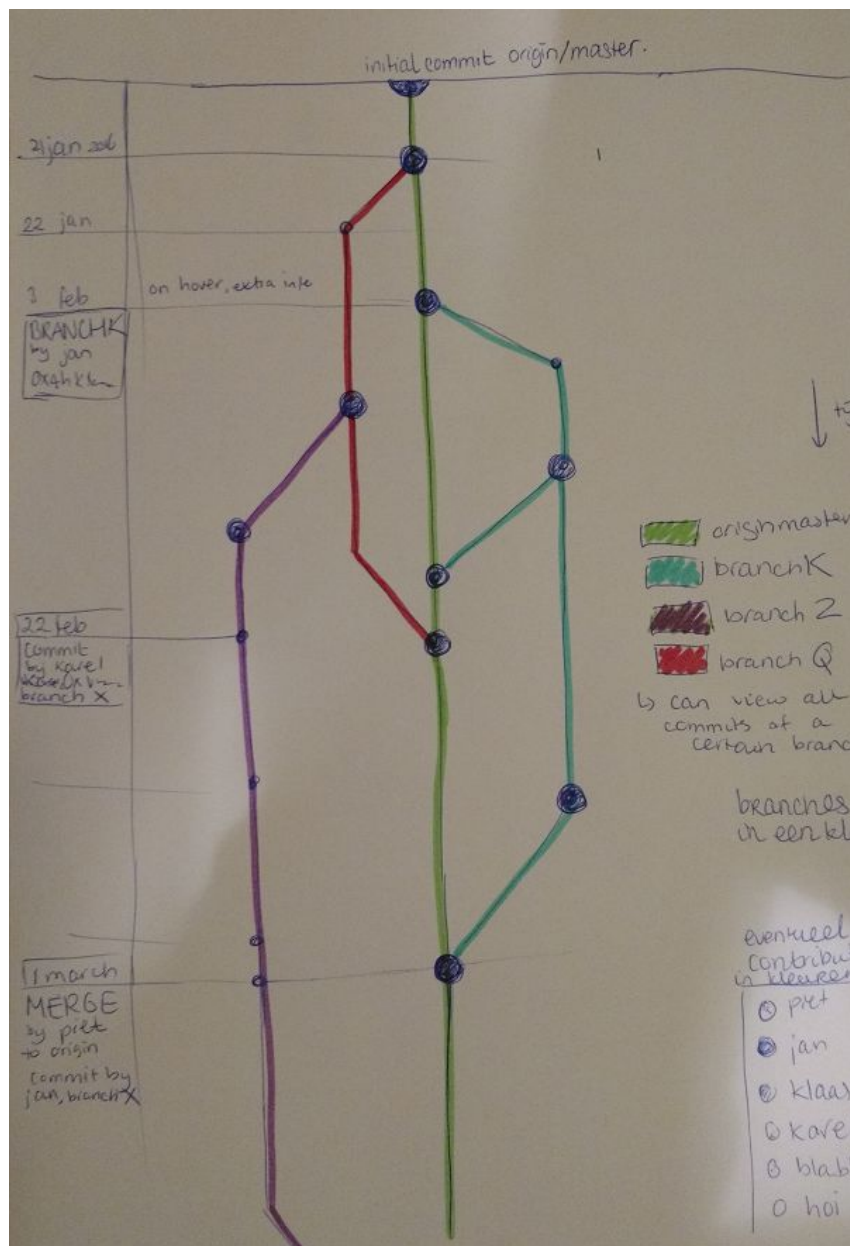 initial commit origin/master.
21 jan 2016
22 jan
3 feb
on hover, extra info
BRANCHK
by jan
22 feb
commit
by Karel
branch X
1 march
MERGE
by piet
to origin
commit by
jan, branch X
originmaster
branchK
branch Z
branch Q
↳ can view all
commits of a
certain branc
branches
in een kl
eventueel
contribu
in kleuren
piet
jan
klaas
kare
blab
hoi